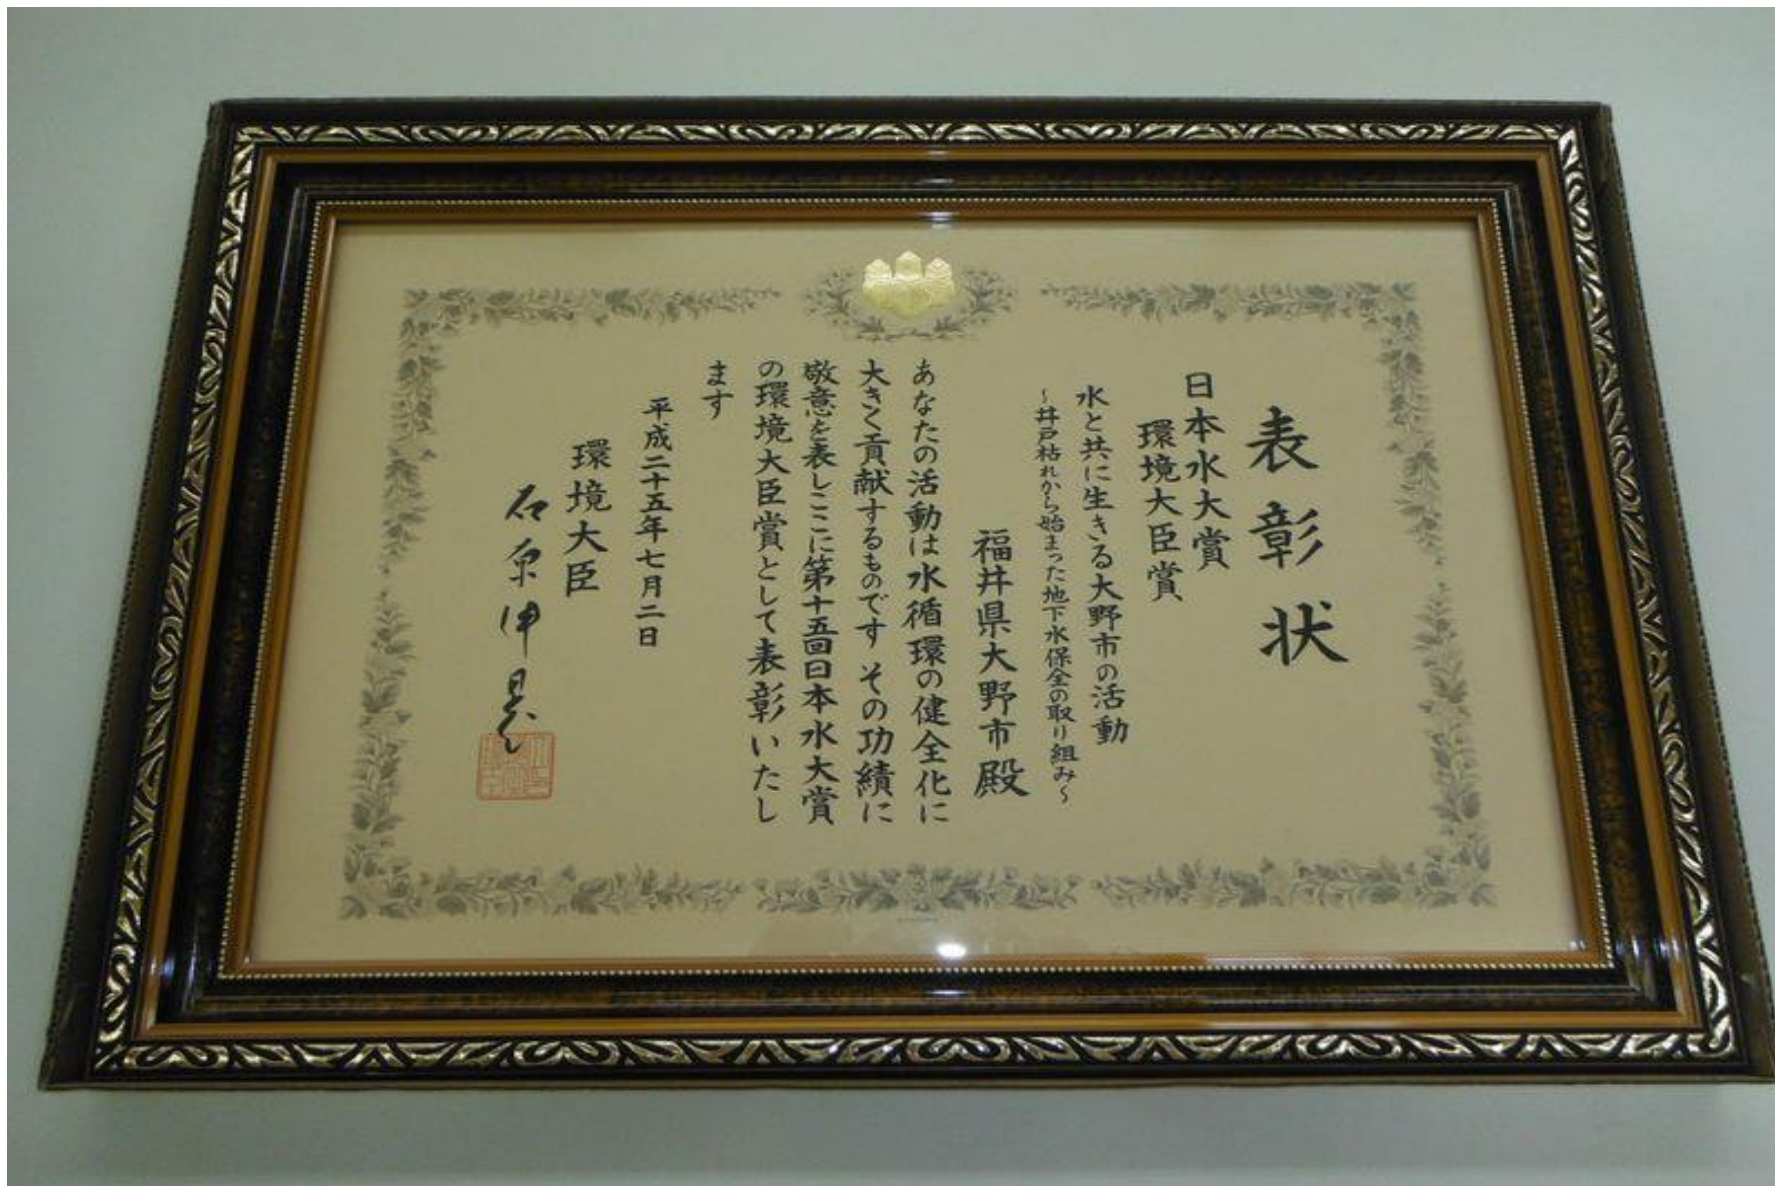 表彰状
日本水大賞
環境大臣賞
水と共に生きる大野市の活動
～井戸枯れから始まった地下水保全の取り組み～
福井県大野市殿
あなたの活動は水循環の健全化に
大きく貢献するものです その功績に
敬意を表しここに第十五回日本水大賞
の環境大臣賞として表彰いたし
ます
平成二十五年七月二日
環境大臣
石原伸晃